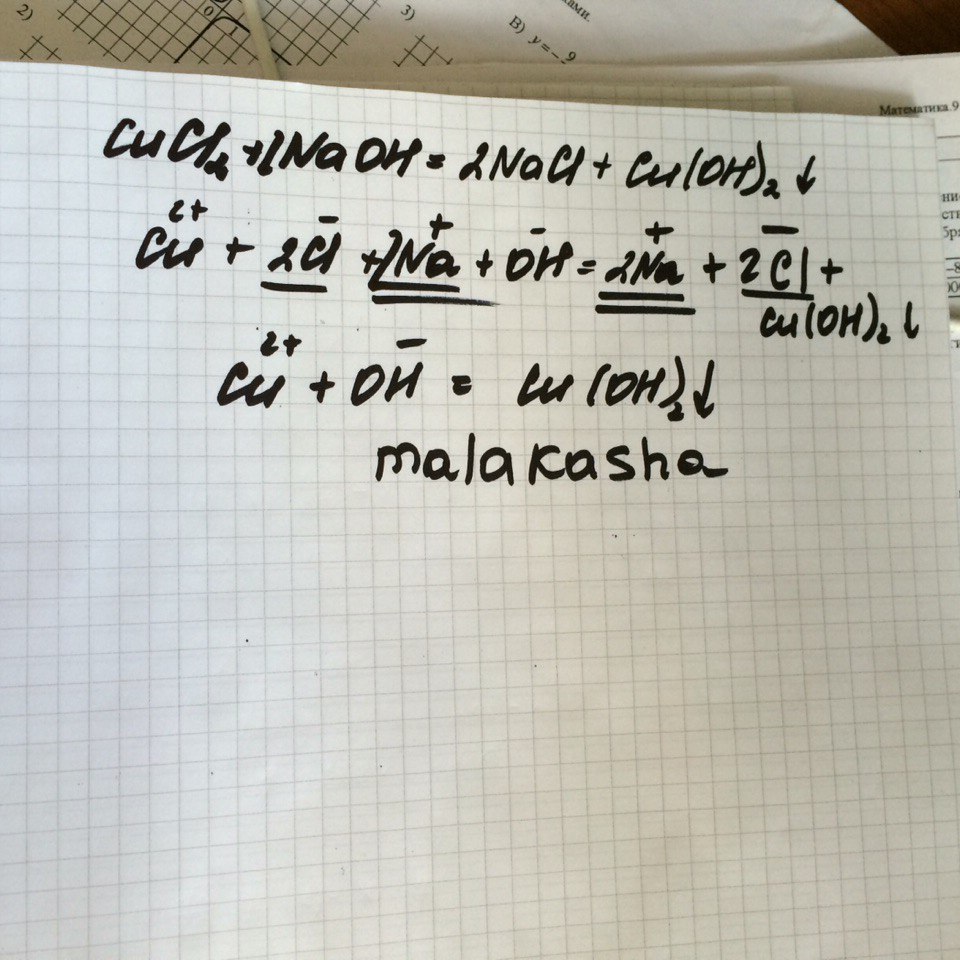 2)
0
1
3)
ками.
В) y = −9
Математика.9
CuCl₂ + 2NaOH = 2NaCl + Cu(OH)₂ ↓
Cu²⁺ + 2Cl⁻ + 2Na⁺ + OH⁻ = 2Na⁺ + 2Cl⁻ +
Cu(OH)₂ ↓
Cu²⁺ + OH⁻ = Cu(OH)₂ ↓
malakasha